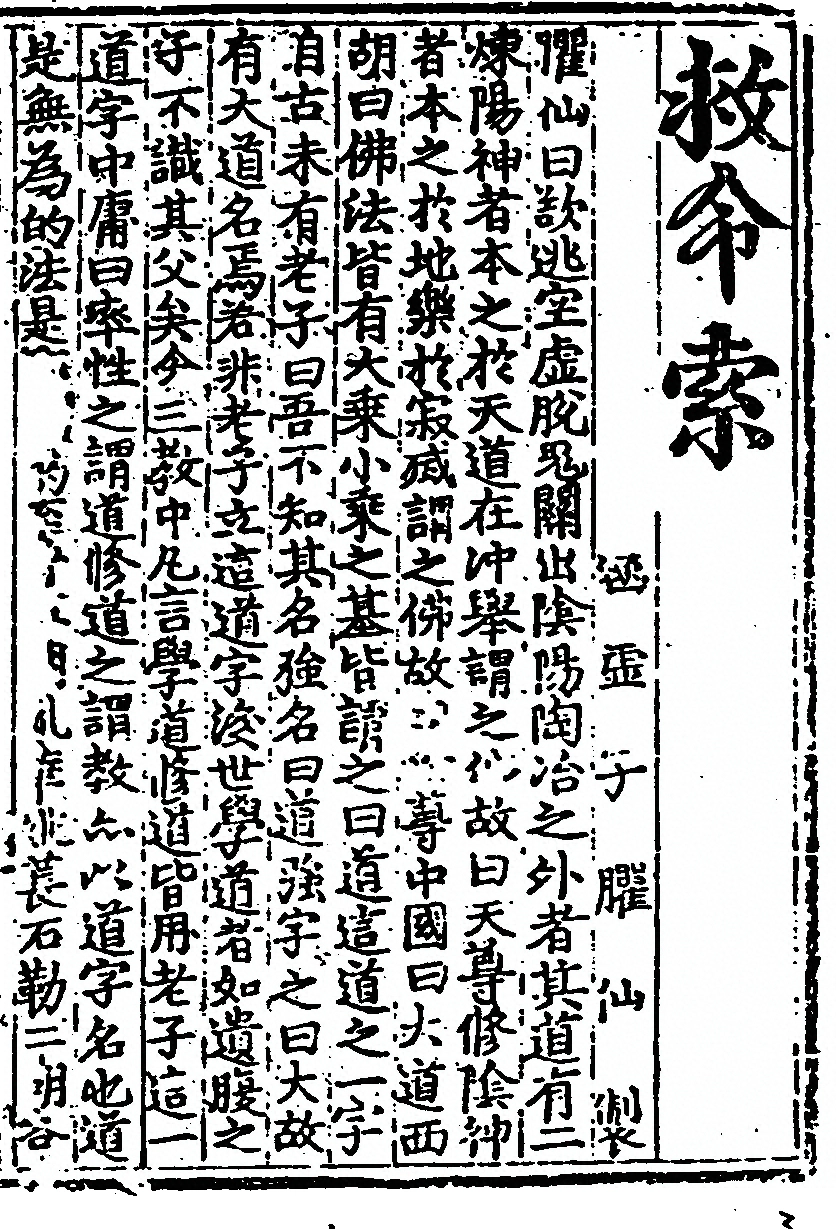 救命索
涵虛子臞仙製
臞仙曰欲逃空虛脫鬼關出陰陽陶冶之外者其道有二
煉陽神者本之於天道在冲舉謂之仙故曰天尊修陰神
者本之於地樂於寂滅謂之佛故曰世尊中國曰大道西
胡曰佛法皆有大乗小乗之基皆謂之曰道這道之一字
自古未有老子曰吾不知其名強名曰道強字之曰大故
有大道名焉若非老子立這道字後世學道者如遺腹之
子不識其父矣今三教中凡言學道修道皆用老子這一
道字中庸曰率性之謂道修道之謂教亦以道字名也道
是無為的法是 石勒二胡